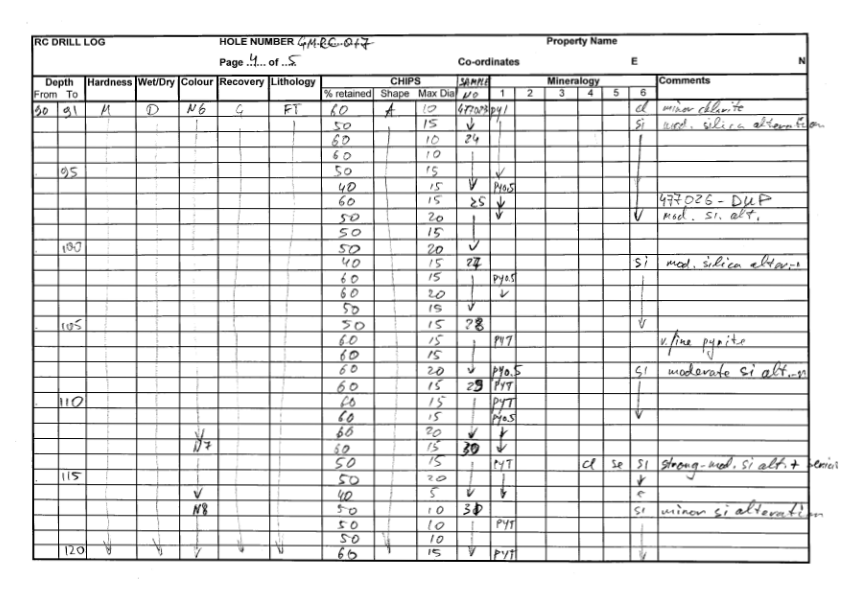 RC DRILL LOG HOLE NUMBER GMRC-017 Property Name
Page 4 of 5 Co-ordinates E N
Depth Hardness Wet/Dry Colour Recovery Lithology CHIPS SAMPLE Mineralogy Comments
From To % retained Shape Max Dia NO 1 2 3 4 5 6
90 91 M D N6 G FT 60 A 10 477023 py1 cl minor chlorite
50 15 si mod. silica alteration
60 10 24
60 10
95 50 15
40 15 PY0.5
60 15 25 477026 - DUP
50 20 mod. si. alt.
50 15
100 50 20
40 15 27 si mod. silica alter-n
60 15 PY0.5
60 20
50 15
105 50 15 28
60 15 PYT v. fine pyrite
60 15
60 20 PY0.5 si moderate si alt.-n
60 15 29 PYT
110 60 15 PYT
60 15 PY0.5
60 20
N7 60 15 30
50 15 PYT cl se si strong-mod. si alt. +
115 50 20
40 5
N8 50 10 si minor si alteration
50 10 PYT
50 10
120 60 15 PYT